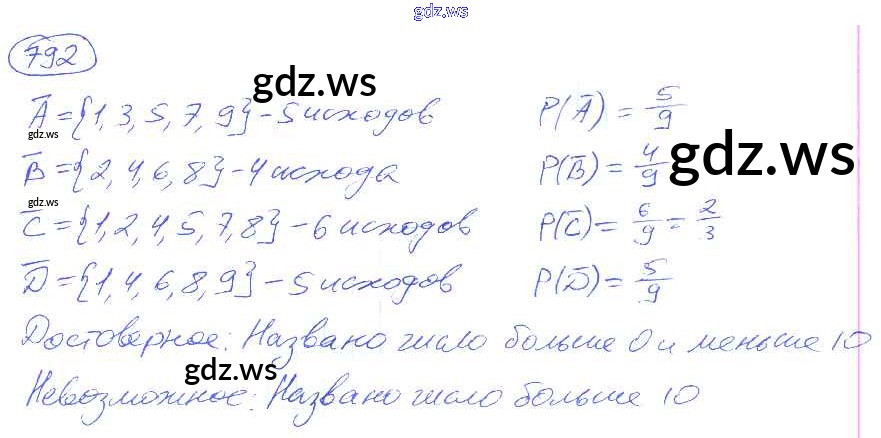 gdz.ws
792
gdz.ws
A̅ = {1, 3, 5, 7, 9} - 5 исходов P(A̅) = 5/9
gdz.ws
B̅ = {2, 4, 6, 8} - 4 исхода P(B̅) = 4/9
gdz.ws
C̅ = {1, 2, 4, 5, 7, 8} - 6 исходов P(C̅) = 6/9 = 2/3
gdz.ws
D̅ = {1, 4, 6, 8, 9} - 5 исходов P(D̅) = 5/9
Достоверное: Названо число больше 0 и меньше 10
gdz.ws
Невозможное: Названо число больше 10